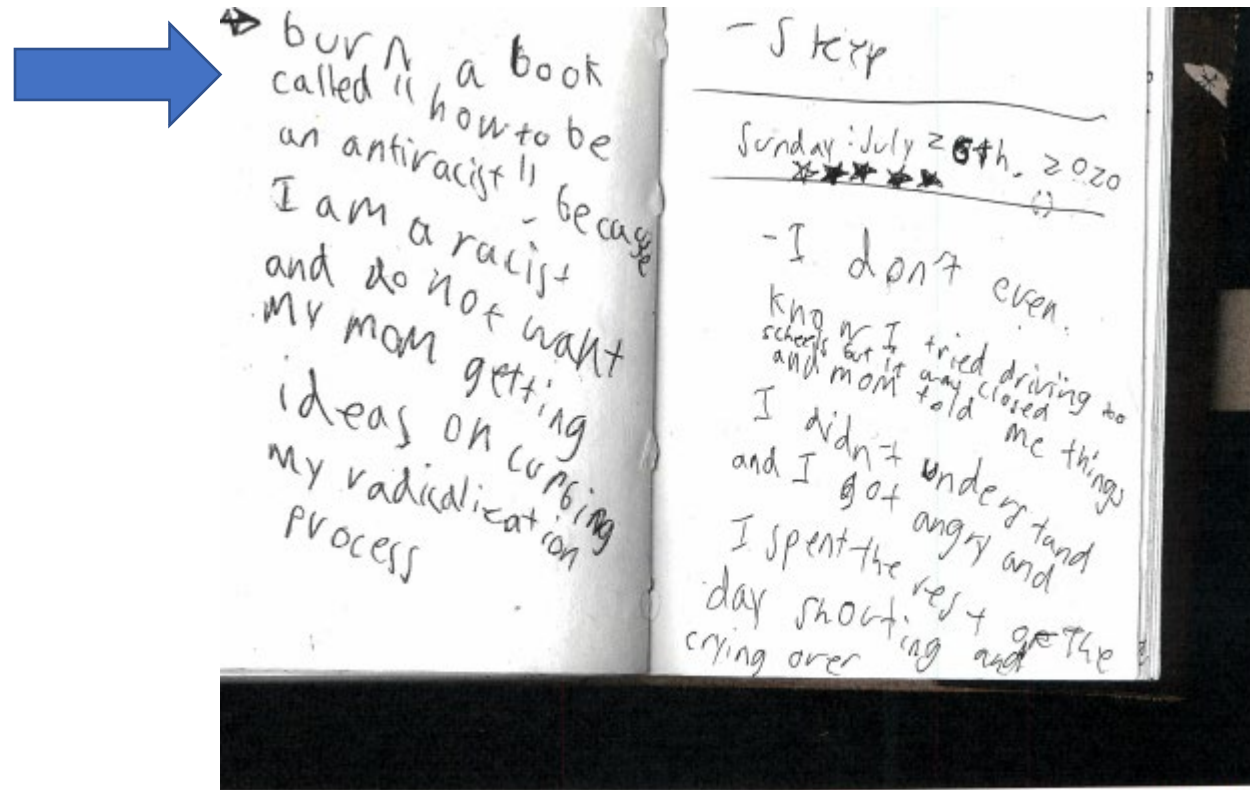 burn a book
called "how to be
an antiracist" because
I am a racist
and do not want
my mom getting
ideas on curbing
my radicalization
process
- Sleep
Sunday: July 26th, 2020
- I don't even
know I tried driving to
scheels but it was closed
and mom told me things
I didn't understand
and I got angry and
I spent the rest of the
day shouting and
crying over